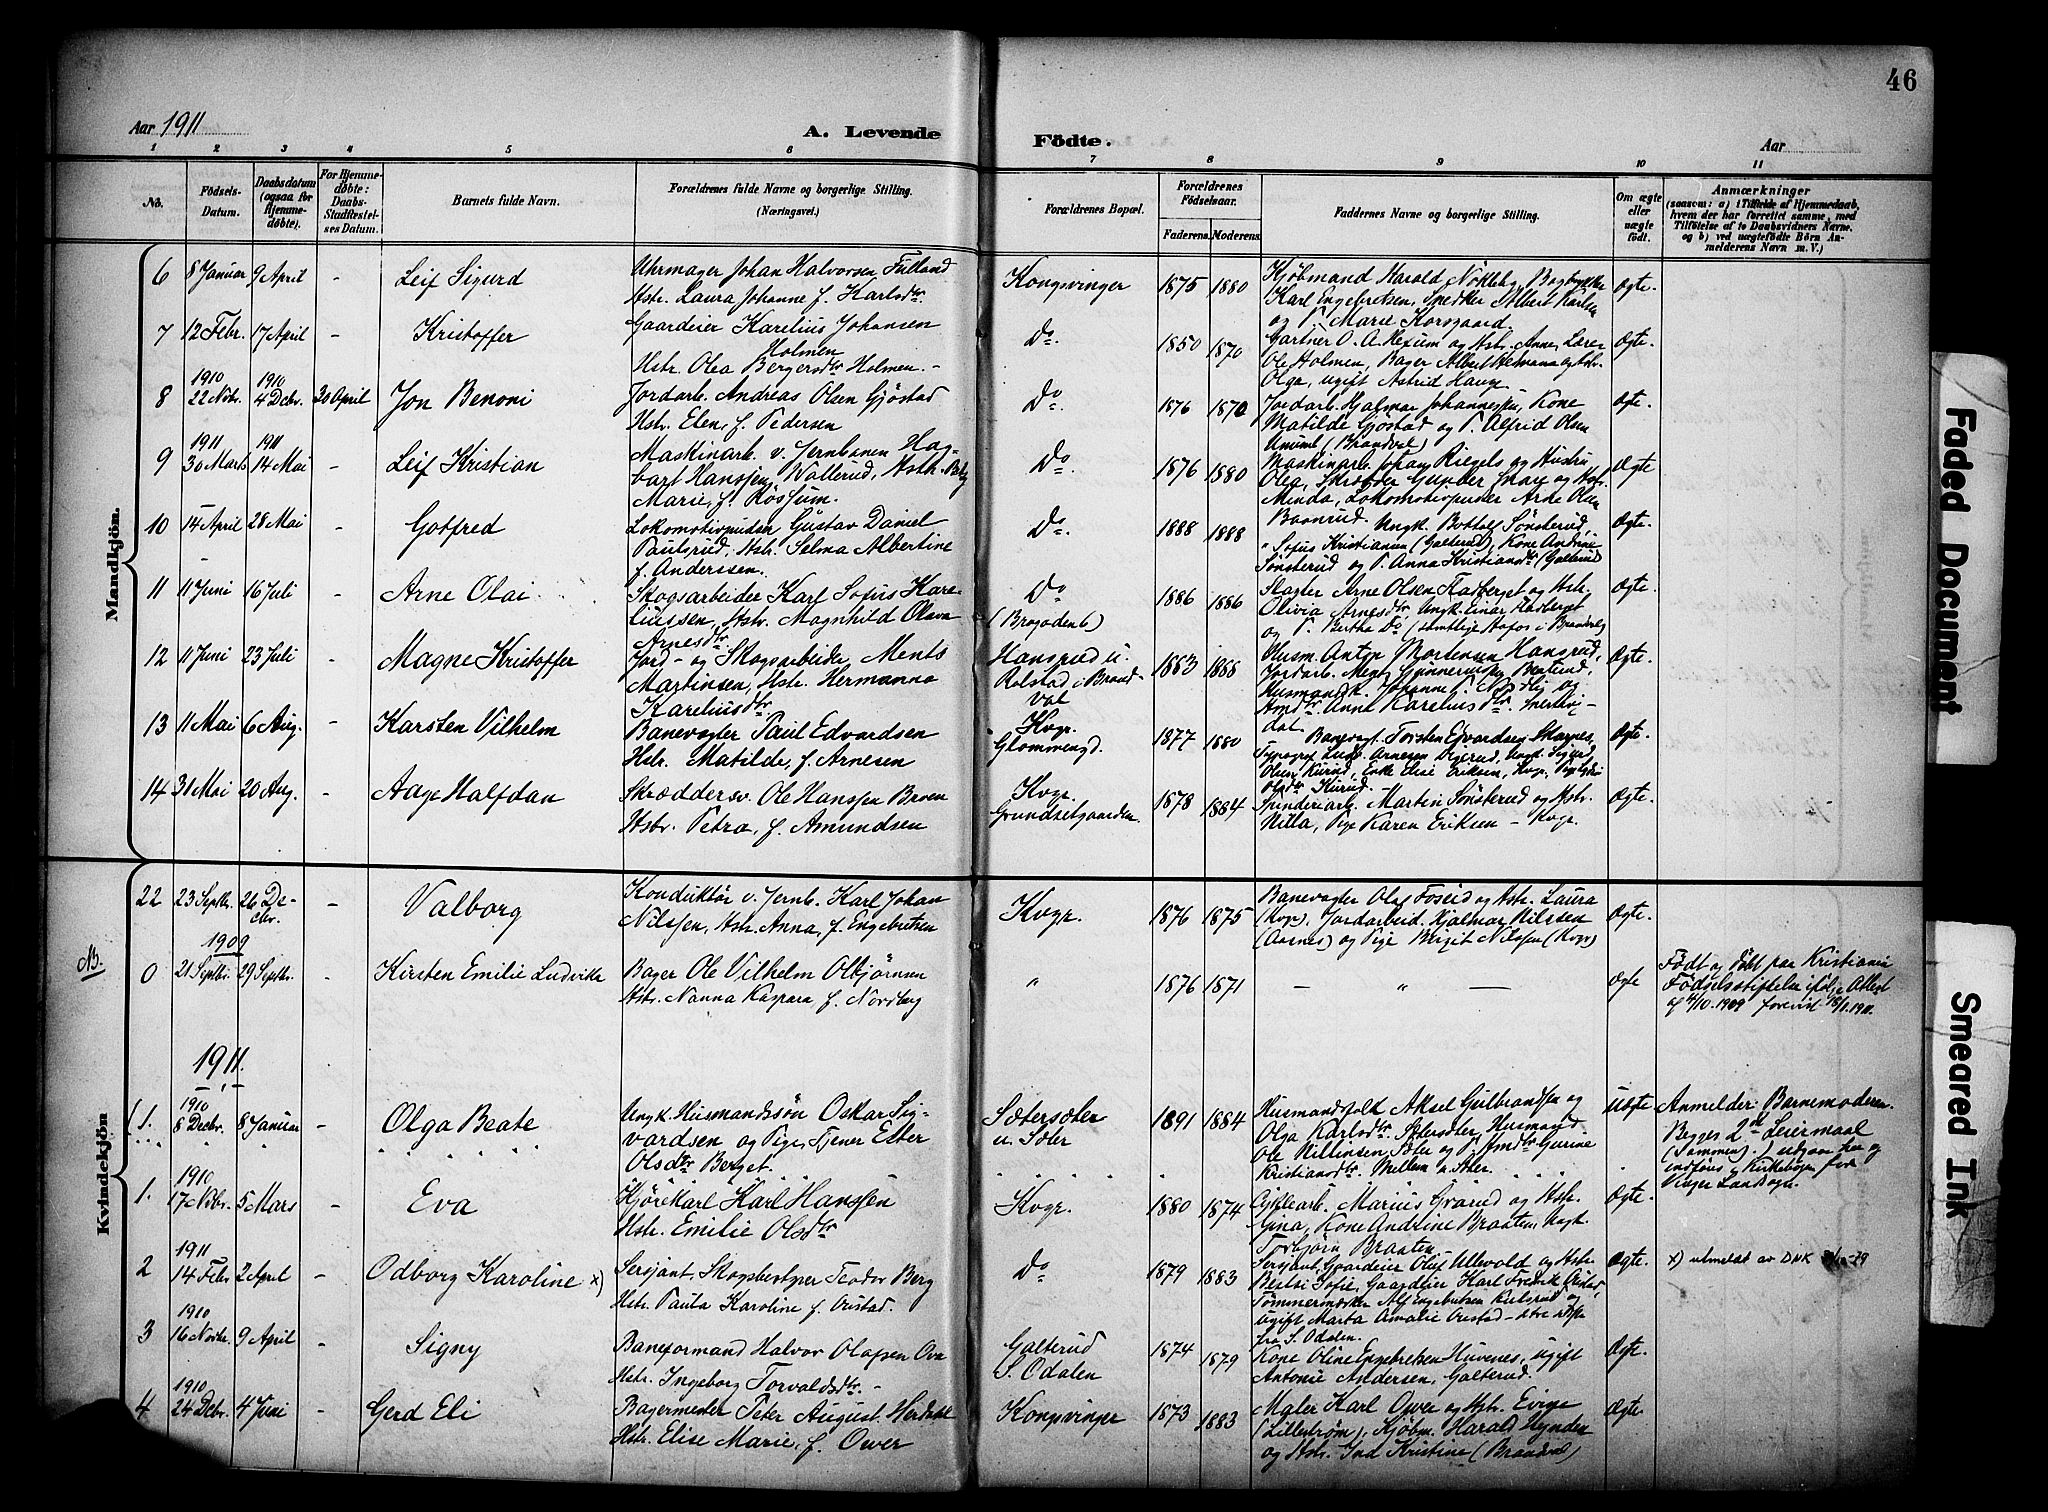 46
Aar 1911
A. Levende
Födte.
Aar
1 2 3 4 5 6 7 8 9 10 11
No.
Födsels-
Datum.
Daabsdatum
(ogsaa for
Hjemme-
döbte).
For Hjemme-
döbte:
Daabs-
Stadfæstel-
ses Datum.
Barnets fulde Navn.
Forældrenes fulde Navne og borgerlige Stilling.
(Næringsvei.)
Forældrenes Bopæl.
Forældrenes
Födselsaar.
Faderens. Moderens.
Faddernes Navne og borgerlige Stilling.
Om ægte
eller
uægte
födt.
Anmærkninger
(saasom: a) i Tilfælde af Hjemmedaab,
hvem der har forrettet samme, med
Tilföielse af to Daabsvidners Navne,
og b) ved uægtefödte Börn An-
melderens Navn m. V.)
Mandkjön.
6 8 Januar 9 April - Leif Sigurd
Uhrmager Johan Halvorsen
Hstr. Laura Johanne f. Karlsdtr.
Kongsvinger 1875 1880
Kjöbmand Harald Nökleby,
Karl Engebretsen, Snedker Albert
og P. Marie Korsgaard.
Ægte.
7 12 Febr. 17 April - Kristoffer
Gaardeier Karelius Johansen
Holmen
Hstr. Olea Bergersdtr Holmen. -
Do. 1850 1870
Gartner O. A. Hexum og Hstr. Anne, Lærer
Ole Holmen, Bager Albert
Olga, ugift Astrid Hauge
Ægte.
8 1910 22 Novbr. 1910 4 Decbr. 30 April Jon Benoni
Jordarb. Andreas Olsen Gjöstad
Hstr. Elen, f. Pedersen
Do 1876 1870
Jordarb. Hjalmar Johannessen, Kone
Matilde Gjöstad og P. Alfrid Olsen
(Brandval)
Ægte.
9 1911 30 Mars 1911 14 Mai - Leif Kristian
Maskinarb. v. Jernbanen Hag-
bart Hanssen, Wallerud, Hstr.
Marie, f. Rössum.
Do. 1876 1880
Maskinarb. Johan Riegels og Hustru
Olga, Skrædder og Hstr.
Minda, Lokomotivpudser Arne Olsen
Ægte
10 14 April 28 Mai - Gotfred
Lokomotivpudser Gustav Daniel
Paulsrud, Hstr. Selma Albertine
f. Anderssen.
Do. 1888 1888
Baanrud. Ungk. Botolf Sönsterud,
" Sofus Kristiansen (Galterud), Kone Andrine
Sönsterud og P. Anna Kristiansdtr (Galterud)
Ægte.
11 11 Juni 16 Juli - Arne Olai
Skogsarbeider Karl Sofus Kare-
liussen, Hstr. Magnhild Olava
Arnesdtr
Do (Brogaden 6) 1886 1886
Slagter Arne Olsen og Hstr.
Olivia Arnesdtr, Ungk. Einar
og P. Bertha Do (samtlige i Brandval)
Ægte.
12 11 Juni 23 Juli - Magne Kristoffer
Jord- og Skogsarbeider Ments
Martinsen, Hstr. Hermanna
Kareliusdtr
Hansrud u.
Rolstad i Brand-
val
1863 1868
Husm. Anton Mortensen Hansrud,
Ægte.
13 11 Mai 6 Aug. - Karsten Vilhelm
Banevogter Paul Edvardsen
Hstr. Matilde, f. Arnesen
Kvgr.
Glommengd.
1877 1880
Banevogt. Torsten Edvardsen Skarnes,
Typograf Ludv. Arnesen Digerud, Ungk. Sigurd
Olsen Kurud, Enke Elise Eriksen, Kvgr.,
Olsdtr Kurud. -
Ægte.
14 31 Mai 20 Aug. - Aage Halfdan
Skræddersv. Ole Hanssen Baren
Hstr. Petra, f. Amundsen
Kvgr.
Grundsetgaarden.
1878 1884
Spinderiarb. Martin Sönsterud og Hstr.
Nilla, Pige Karen Eriksen - Kvgr.
Ægte.
Kvindekjön
22 23 Septbr. 26 De-
cbr. - Valborg
Konduktör v. Jernb. Karl Johan
Nilssen, Hstr. Anna, f. Engebretsen
Kvgr. 1876 1875
Banevogter Olaf Fossid og Hstr. Laura
(Kvgr). Jordarbeid. Hjalmar Nilssen
(Aarnes) og Pige Birgit Nilssen (Kvgr)
Ægte.
NB.
1909
0 21 Septbr. 29 Septbr. - Kirsten Emilie Ludvikke
Bager Ole Vilhelm Olbjörnsen
Hstr. Nanna Kaspara f. Nordberg
" 1876 1871
— " —
Ægte
Födt og döbt paa Kristiania
Födselsstiftelse ifölge Attest
af 4/10.1909 forevist
1911.
(1. 1910 8 Decbr. 8 Januar - Olga Beate
Ungk. Husmandssön Oskar Sig-
vardsen og Pige, Tjener Ester
Olsdtr Berget.
Sætersæter
u. Sæter
1891 1884
Husmandsfolk Aksel Gulbrandsen og
Olga Karlsdtr, Sætersæter, Husmand
Ole Nillinsen, Sæter og P. Amdtr Gurine
Kristiansdtr. Mellem u. Sæter.
Uægte
Anmelder: Barnemoderen.
Begges 2det Leiermaal
(Sammen.) udgaar her og
indföres i Kirkebogen for
Vinger Landsogn.
1. 1910 17 Novbr. 5 Mars - Eva
Kjörekarl Karl Hanssen
Hstr. Emilie Olsdtr
Kvgr. 1880 1874
Cyklearb. Marius Grarud og Hstr.
Gina, Kone Andrine Braaten, Ungk.
Torbjörn Braaten
Ægte.
2 1911 14 Febr 2 April - Odborg Karoline x)
Sersjant, Skogbestyrer Teodor Berg
Hstr. Paula Karoline f. Oustad.
Do 1879 1883
Sersjant, Gaardeier Olaf Ullevold og Hstr.
Betsi Sofie, Gaardeier Karl Fredrik Oustad,
Tömmermærker Alf Engebretsen Kulsrud og
ugift Marta Amalie Oustad -
fra S. Odalen.
Ægte.
x) utmeldt av DNK
3 1910 16 Novbr. 9 April - Signy
Baneformand Halvor Olafsen Ova
Hstr. Ingeborg Torvaldsdtr. -
Galterud
S. Odalen
1874 1879
Kone Oline Engebretsen Huvenes, ugift
Antonie Andersen, Galterud.
Ægte.
4 1910 24 Decbr. 4 Juni - Gerd Eli
Bagermester Peter August Herdahl
Hstr. Elise Marie, f. Over
Kongsvinger 1873 1883
Maler Karl Over og Hstr. Evine
(Lilleström), Kjöbm. Harald
og Hstr. Kristine (Brandval)
Ægte.
Faded Document
Smeared Ink